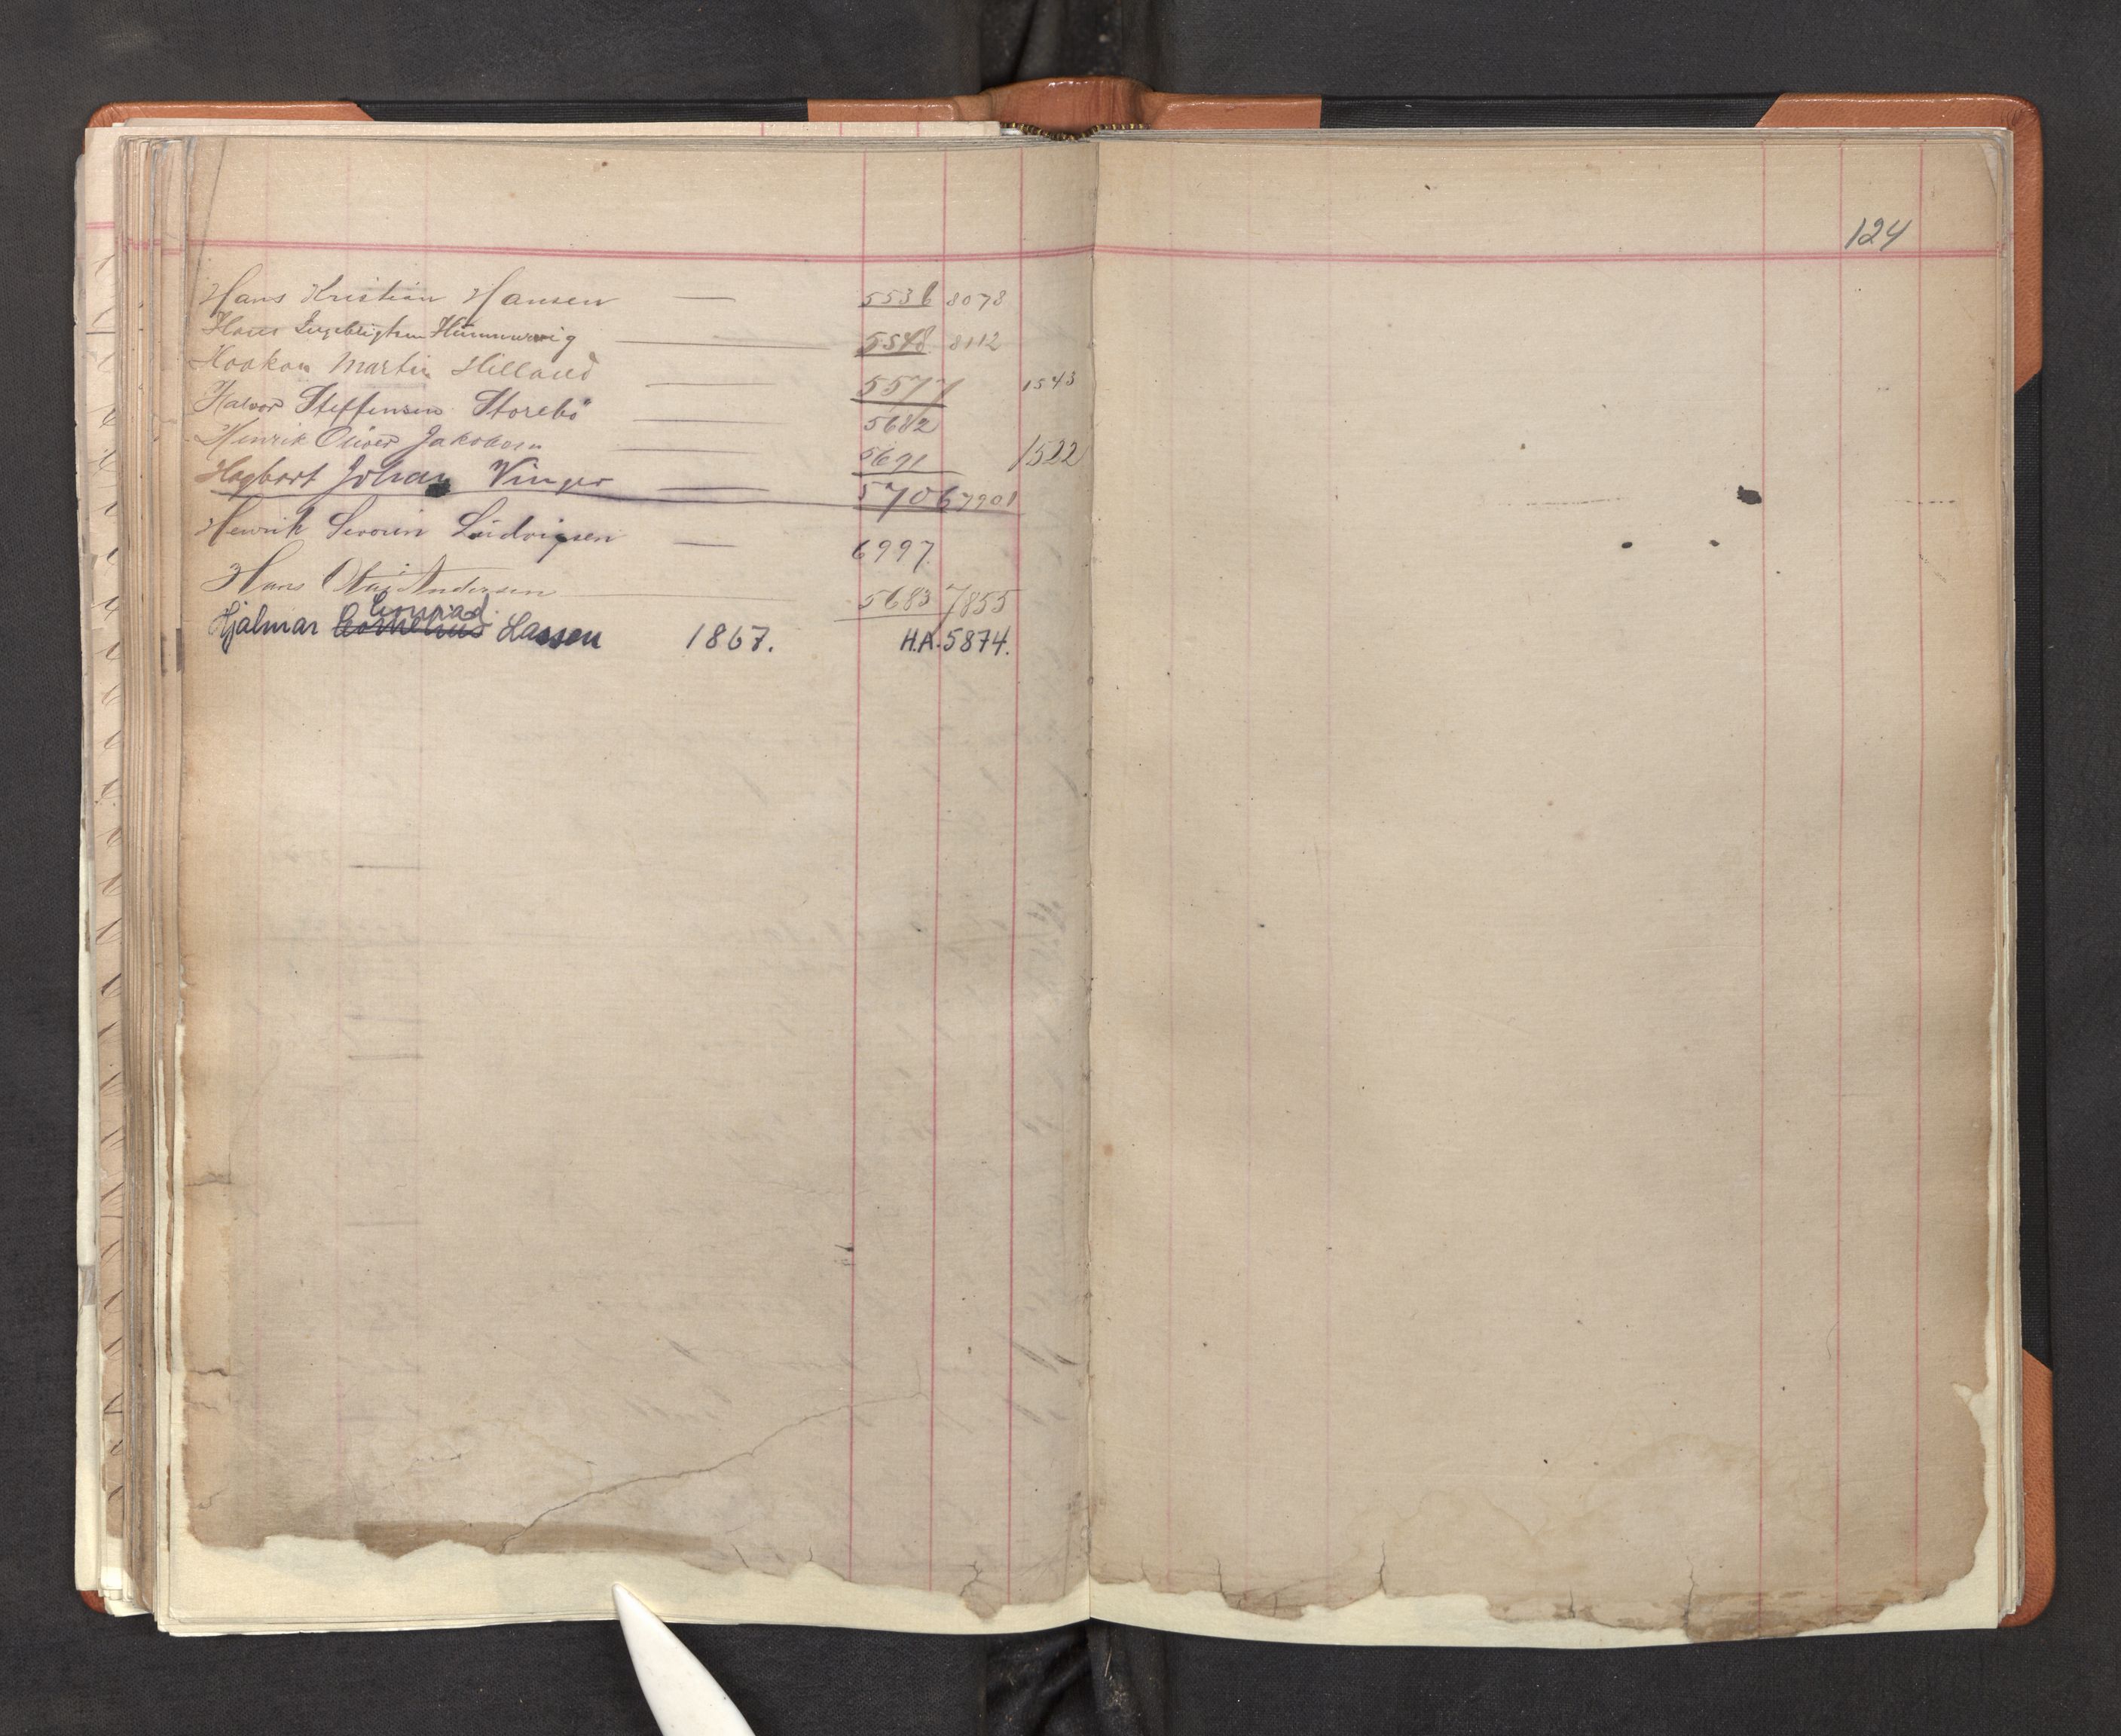 124
Hans Kristian Hansen — 5536 8078
Hans Ingebrigtsen — 5548 8112
Haakon Martin Hilland — 5577 1543
Halvor Steffensen Storebö — 5682
Henrik Oliver Jakobsen — 5691 1522
Hagbart Johan Vinger — 5706 7901
Henrik Severin Ludvigsen — 6997.
Hans Olai Andersen — 5683 7855
Conrad
Hjalmar Cornelius Lassen 1867. H.A. 5874.